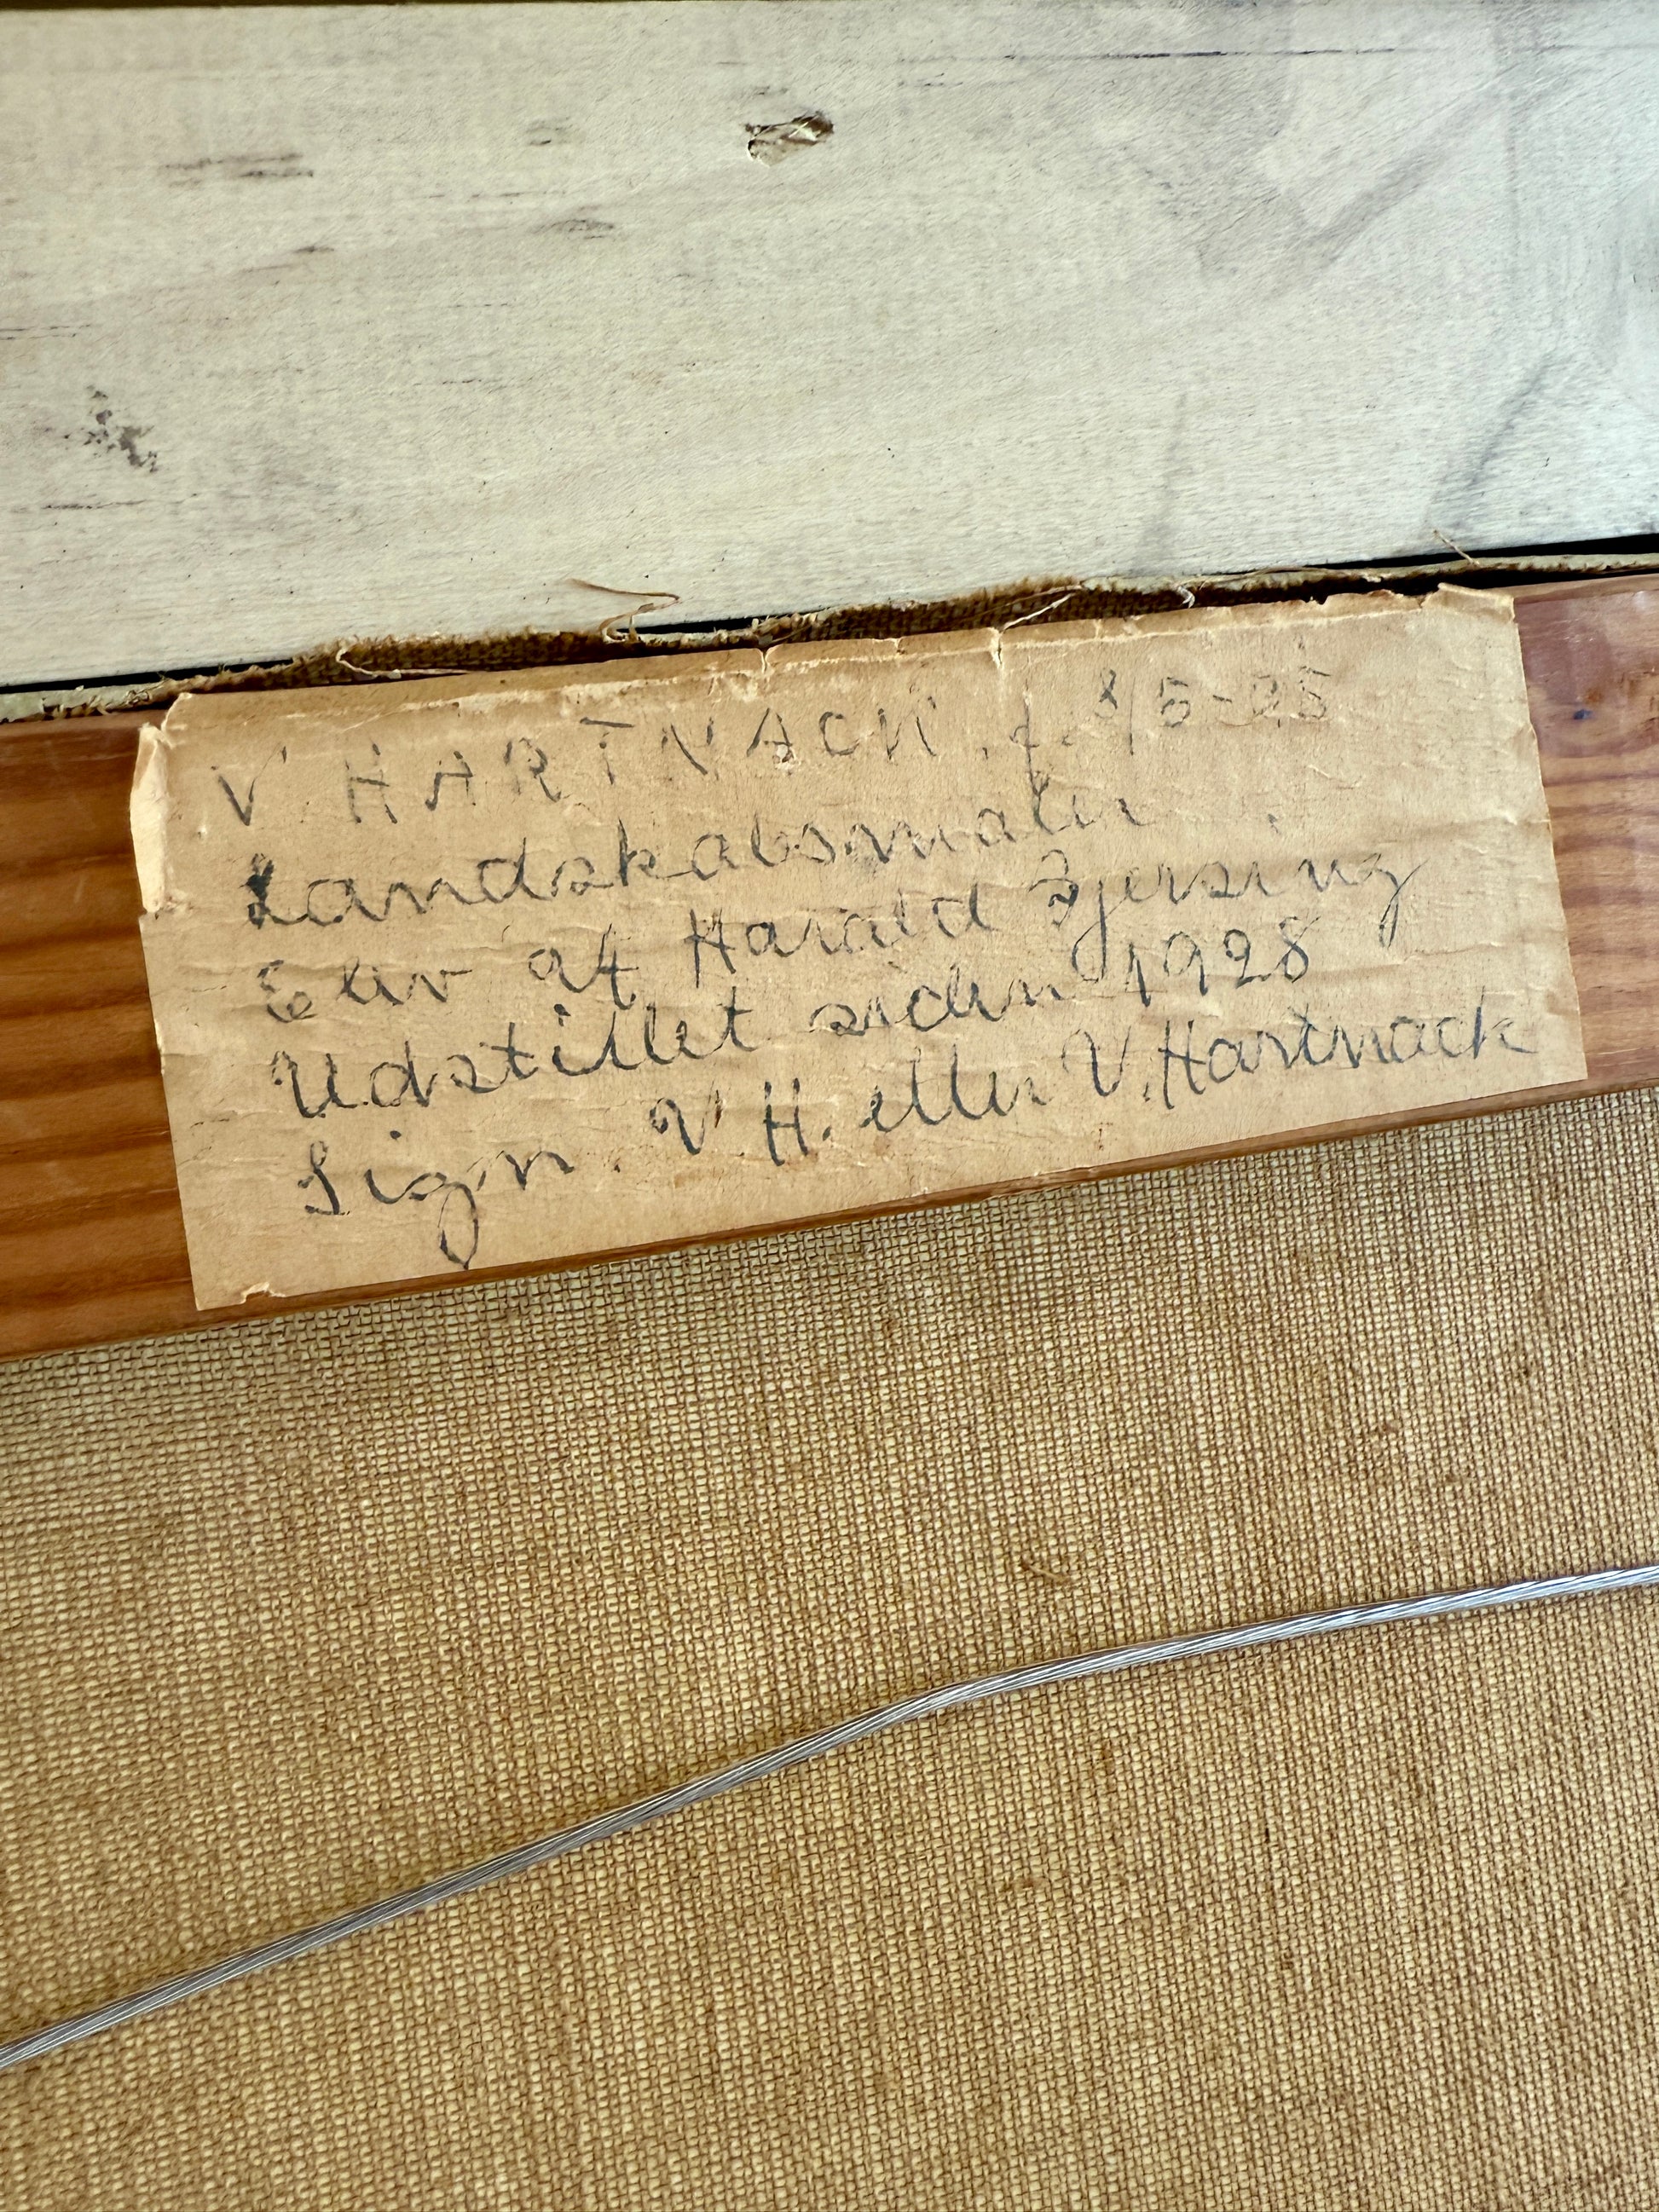 V. HARTNACK. f. 8/5-95
Landskabsmaler
Elev af Harald Bjerzing
Udstillet siden 1928
Sign. V.H. eller V. Hartnack